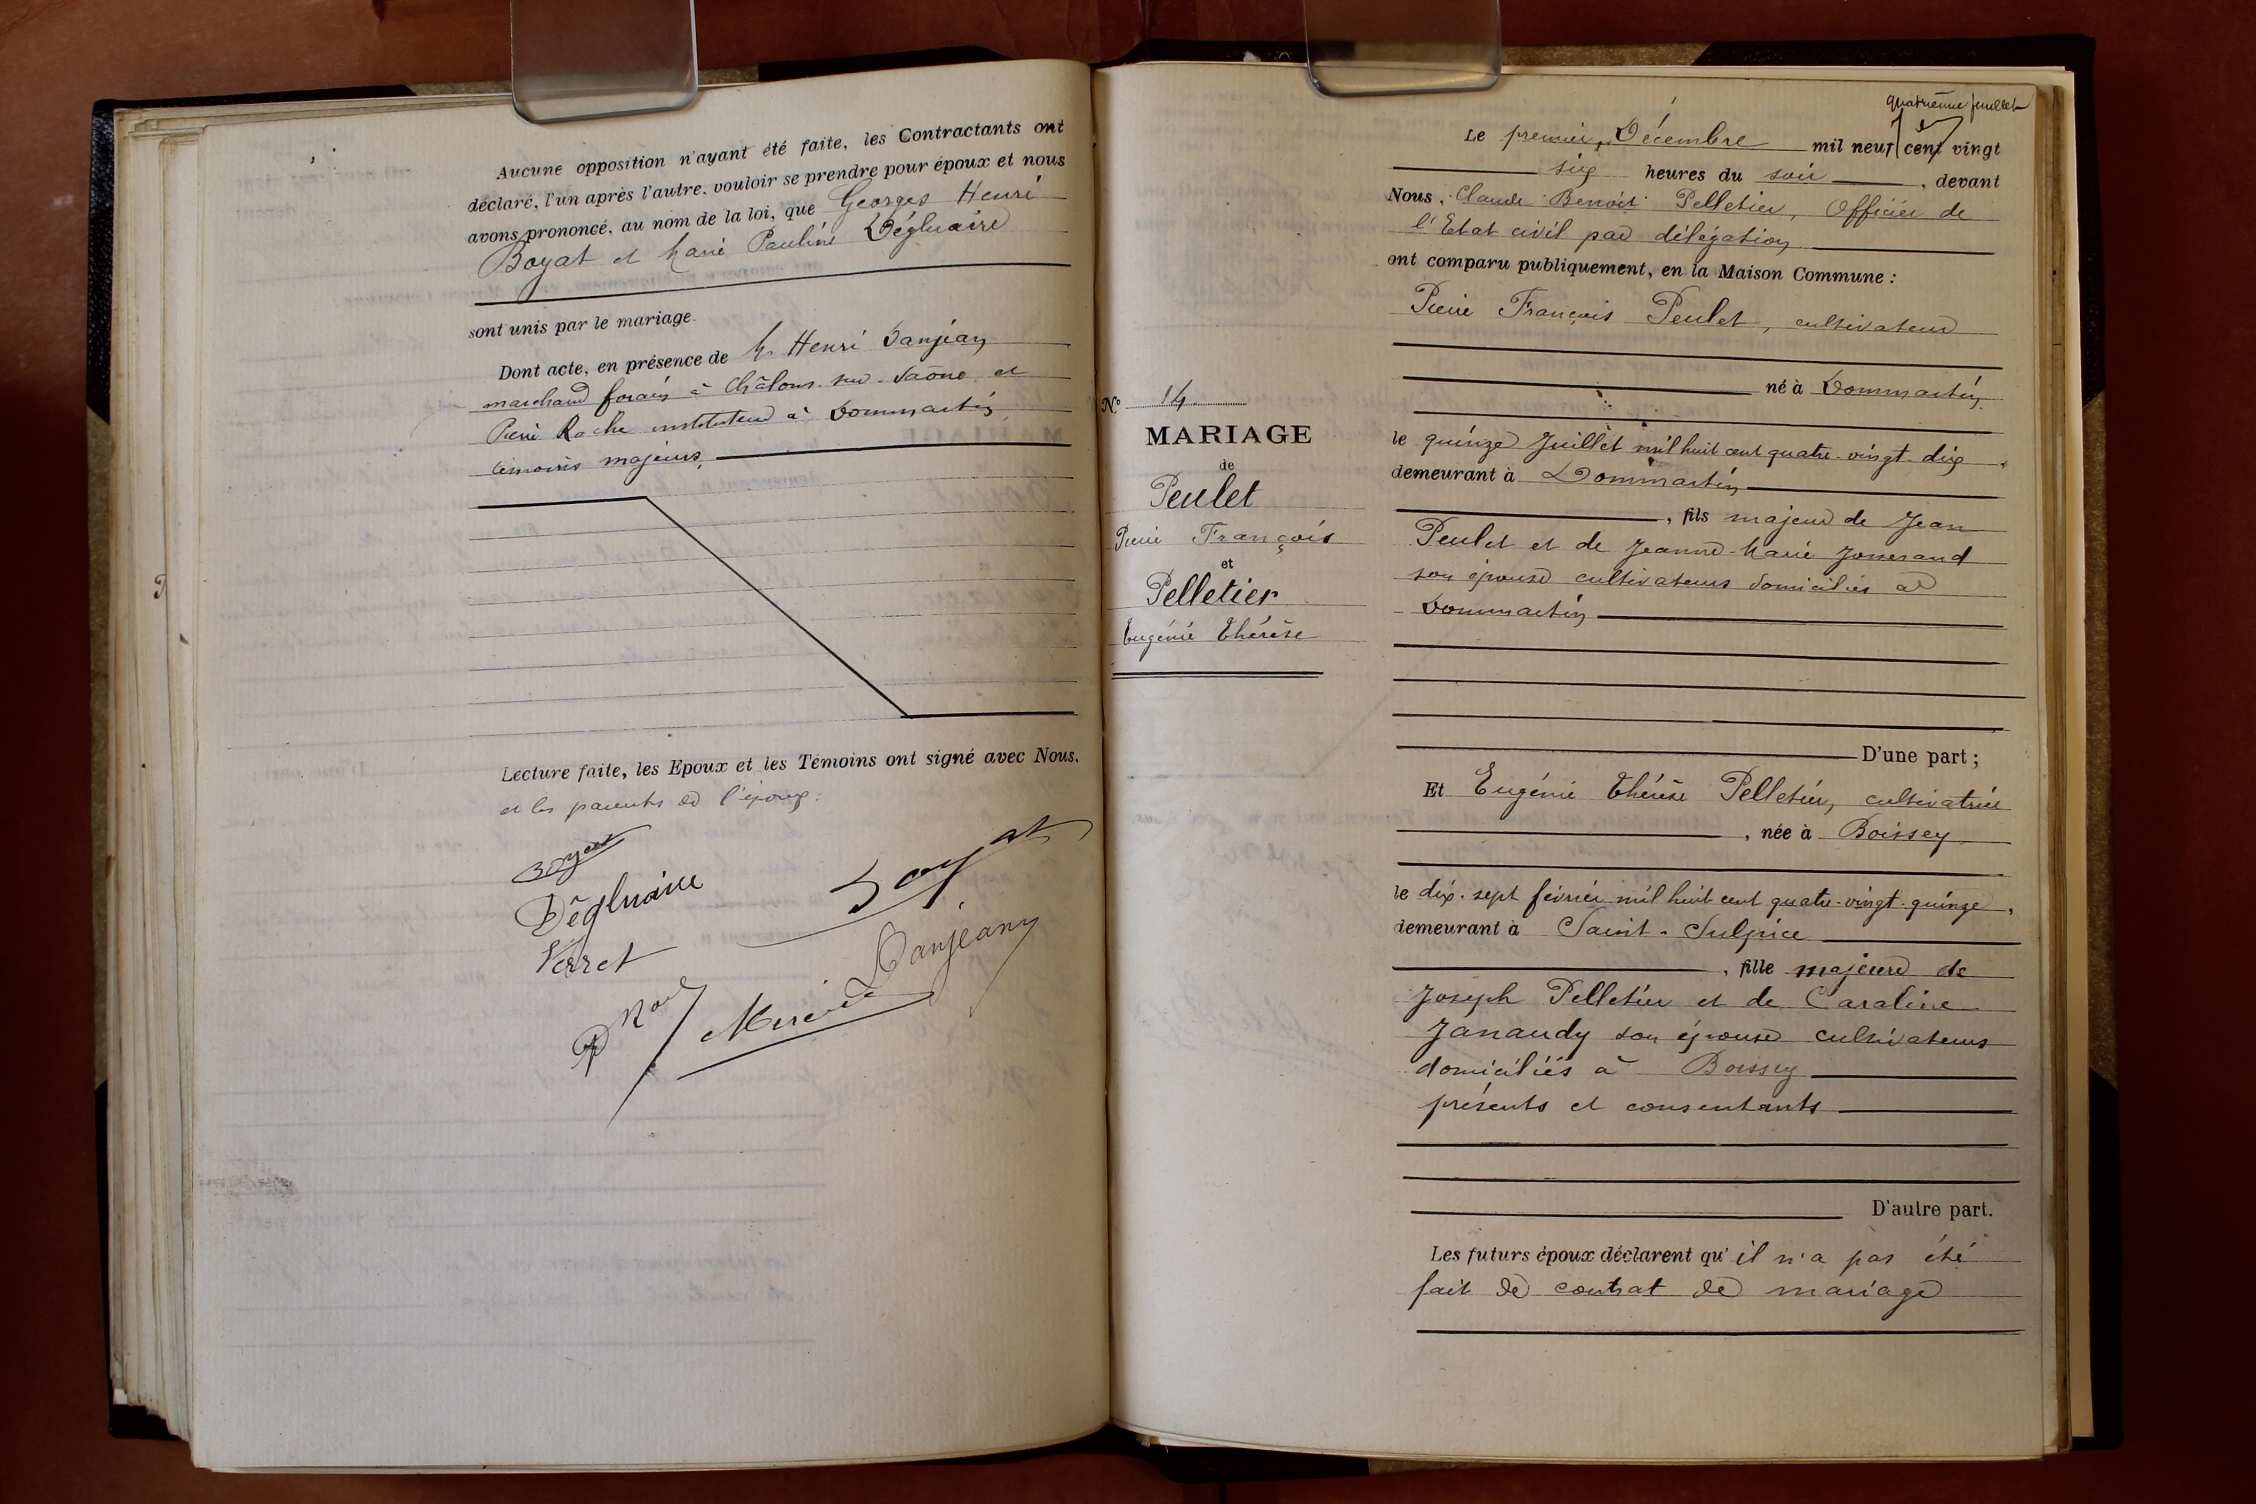 Aucune opposition n'ayant été faite, les Contractants ont
déclaré, l'un après l'autre, vouloir se prendre pour époux et nous
avons prononcé, au nom de la loi, que Georges Henri
Boyat et Marie Pauline Dégluaire
sont unis par le mariage.
Dont acte, en présence de M. Henri Danjean
marchand forain à Châlons-sur-Saône et
Pierre Roche instituteur à Dommartin,
témoins majeurs,
Lecture faite, les Epoux et les Témoins ont signé avec Nous.
et les parents de l'époux:
Boyat
Dégluaire
Boyat
Verret
Danjean
quatrième feuillet
Le premier Décembre mil neuf cent vingt
six heures du soir, devant
Nous, Claude Benoît Pelletier, Officier de
l'Etat civil par délégation
ont comparu publiquement, en la Maison Commune :
Pierre François Peulet, cultivateur
né à Dommartin
le quinze Juillet mil huit cent quatre-vingt-dix,
demeurant à Dommartin
, fils majeur de Jean
Peulet et de Jeanne-Marie Josserand
son épouse cultivateurs domiciliés à
Dommartin
N° 14
MARIAGE
de
Peulet
Pierre François
et
Pelletier
Eugénie Thérèse
D'une part ;
Et Eugénie Thérèse Pelletier, cultivatrice
, née à Boissey
le dix-sept février mil huit cent quatre-vingt-quinze,
demeurant à Saint-Sulpice
, fille majeure de
Joseph Pelletier et de Caroline
Janaudy son épouse cultivateurs
domiciliés à Boissey
présents et consentants
D'autre part.
Les futurs époux déclarent qu'il n'a pas été
fait de contrat de mariage